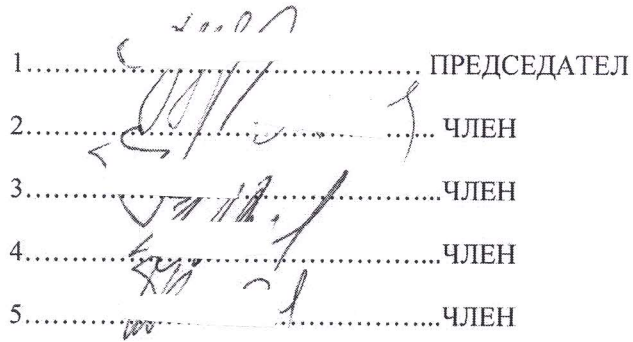 1……………………………………… ПРЕДСЕДАТЕЛ
2………………………………………... ЧЛЕН
3………………………………………...ЧЛЕН
4………………………………………...ЧЛЕН
5………………………………………...ЧЛЕН